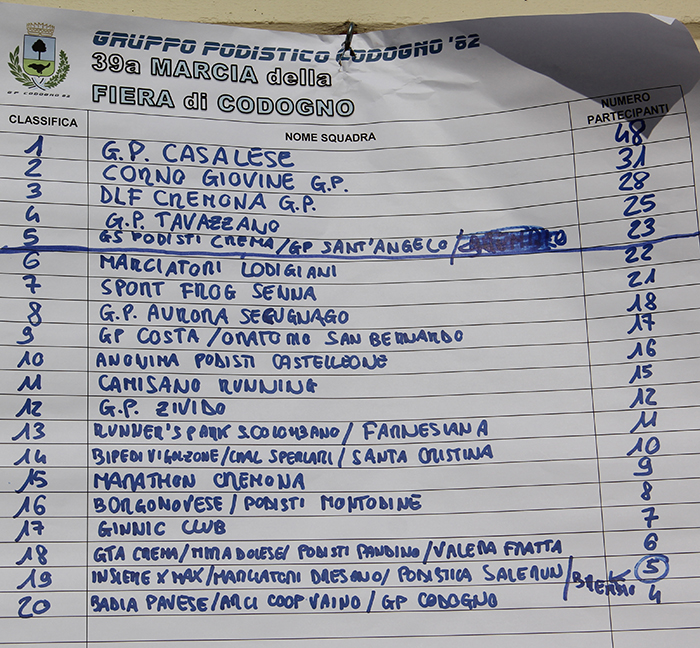 GRUPPO PODISTICO CODOGNO '82
39a MARCIA della
FIERA di CODOGNO
G.P. CODOGNO 82
CLASSIFICA NOME SQUADRA NUMERO PARTECIPANTI
1 G.P. CASALESE 48
2 CORNO GIOVINE G.P. 31
3 DLF CREMONA G.P. 28
4 G.P. TAVAZZANO 25
5 GS PODISTI CREMA/GP SANT'ANGELO/ 23
6 MARCIATORI LODIGIANI 22
7 SPORT FROG SENNA 21
8 G.P. AURORA SEGUGNAGO 18
9 GP COSTA/ORATORIO SAN BERNARDO 17
10 ANONIMA PODISTI CASTELLEONE 16
11 CAMISANO RUNNING 15
12 G.P. ZIVIDO 12
13 RUNNER'S PARK S.COLOMBANO/FARNESIANA 11
14 BIPEDI VIGOLZONE/CRAL SPERLARI/SANTA CRISTINA 10
15 MARATHON CREMONA 9
16 BORGONOVESE/PODISTI MONTODINE 8
17 GINNIC CLUB 7
18 GTA CREMA/MIRADOLESE/PODISTI PANDINO/VALERA FRATTA 6
19 INSIEME X MAX/MARCIATORI DRESANO/PODISTICA SALERUN/ 5
20 BADIA PAVESE/ARCI COOP VAINO/GP CODOGNO 4